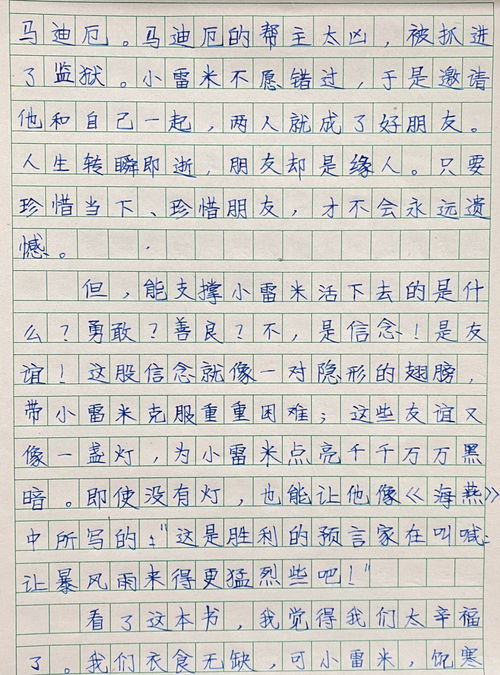 马迪厄。马迪厄的帮主太凶，被抓进
了监狱。小雷米不愿错过，于是邀请
他和自己一起，两人就成了好朋友。
人生转瞬即逝，朋友却是缘人。只要
珍惜当下、珍惜朋友，才不会永远遗
憾。
但，能支撑小雷米活下去的是什
么？勇敢？善良？不，是信念！是友
谊！这股信念就像一对隐形的翅膀，
带小雷米克服重重困难；这些友谊又
像一盏灯，为小雷米点亮千千万万黑
暗。即使没有灯，也能让他像《海燕》
中所写的：“这是胜利的预言家在叫喊：
让暴风雨来得更猛烈些吧！”
看了这本书，我觉得我们太辛福
了。我们衣食无缺，可小雷米，饥寒